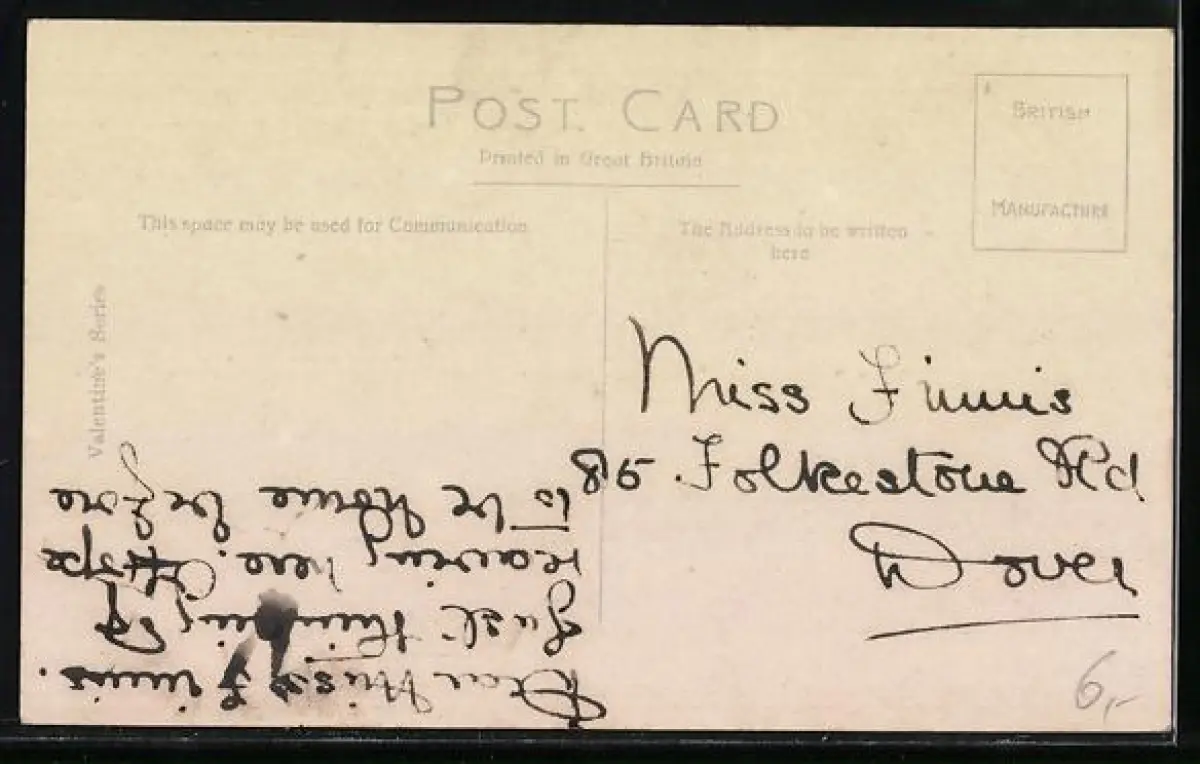 POST CARD
Printed in Great Britain
This space may be used for Communication
The Address to be written
here
BRITISH
MANUFACTURE
Valentine's Series
Miss Finnis
85 Folkestone Rd
Dover
Dear Miss Finnis.
Just thinking of
leaving here. Hope
to be home before
6,-